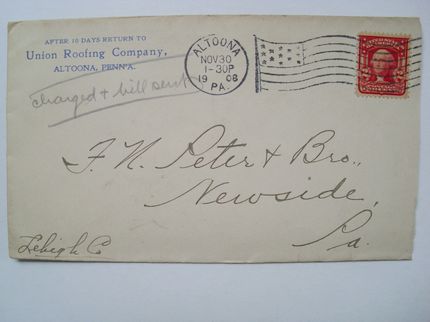 AFTER 10 DAYS RETURN TO
Union Roofing Company,
ALTOONA, PENN'A.
charged & bill sent
ALTOONA
NOV 30
1-30P
1908
PA.
F. N. Peter & Bro.,
Newside,
Pa.
Lehigh Co